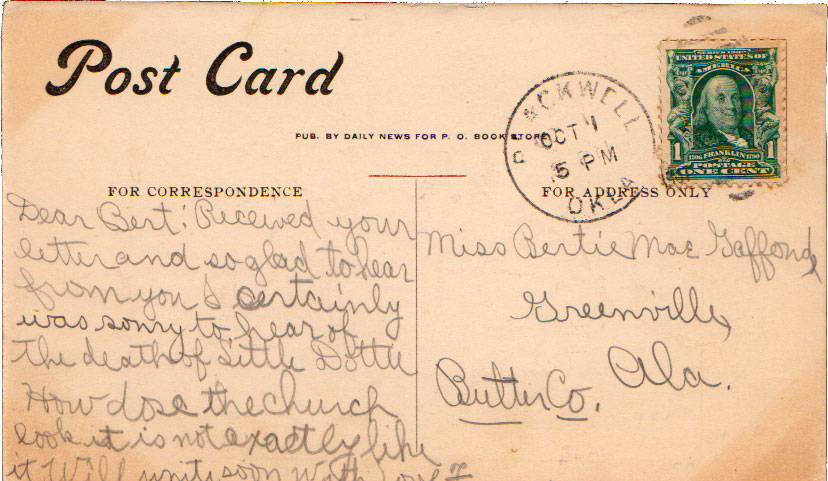 Post Card
PUB. BY DAILY NEWS FOR P. O. BOOK STORE
BLACKWELL
OCT
5 PM
OKLA
SERIES 1902
UNITED STATES OF
AMERICA
1706 FRANKLIN 1790
1 POSTAGE 1
ONE CENT
FOR CORRESPONDENCE
Dear Bert: Received your
letter and so glad to hear
from you I certainly
was sorry to hear of
the death of Little Dottie
How dose the church
look it is not exactly like
it Will write soon With love
FOR ADDRESS ONLY
Miss Bertie Mae
Greenville
Butler Co. Ala.